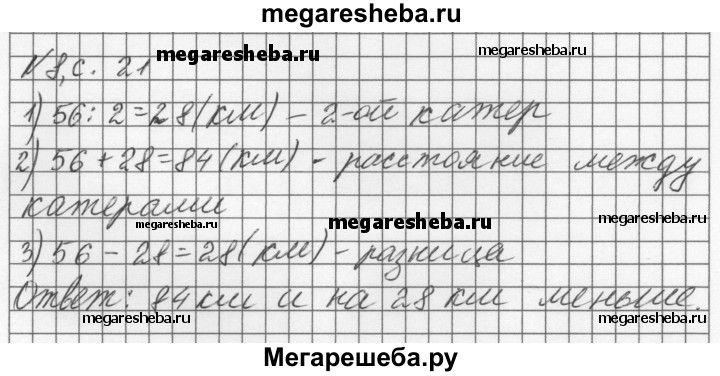 megaresheba.ru
megaresheba.ru
megaresheba.ru
N 8, с. 21
megaresheba.ru
1) 56 : 2 = 28 (км) – 2-ой катер
megaresheba.ru
2) 56 + 28 = 84 (км) - расстояние между
катерами
megaresheba.ru
megaresheba.ru
megaresheba.ru
3) 56 – 28 = 28 (км) - разница
Ответ: 84 км и на 28 км меньше.
megaresheba.ru
megaresheba.ru
megaresheba.ru
Мегарешеба.ру